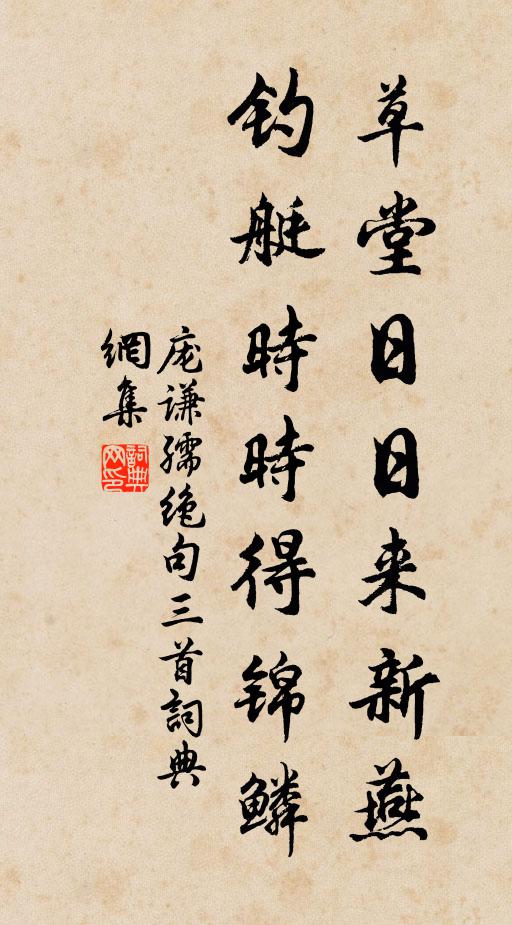 草堂日日来新燕
钓艇時時得锦鳞
庞谦孺绝句三首詞典
網集
詞典网印